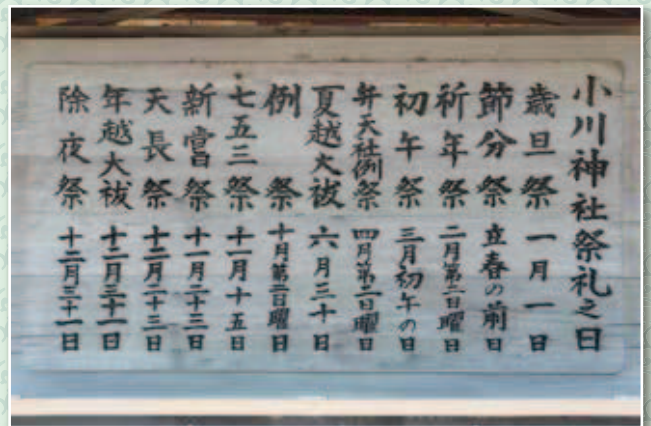 小川神社祭礼之日
歳旦祭 一月一日
節分祭 立春の前日
祈年祭 二月第二日曜日
初午祭 三月初午の日
弁天社例祭 四月第二日曜日
夏越大祓 六月三十日
例祭 十月第二日曜日
七五三祭 十一月十五日
新嘗祭 十一月二十三日
天長祭 十二月二十三日
年越大祓 十二月三十一日
除夜祭 十二月三十一日